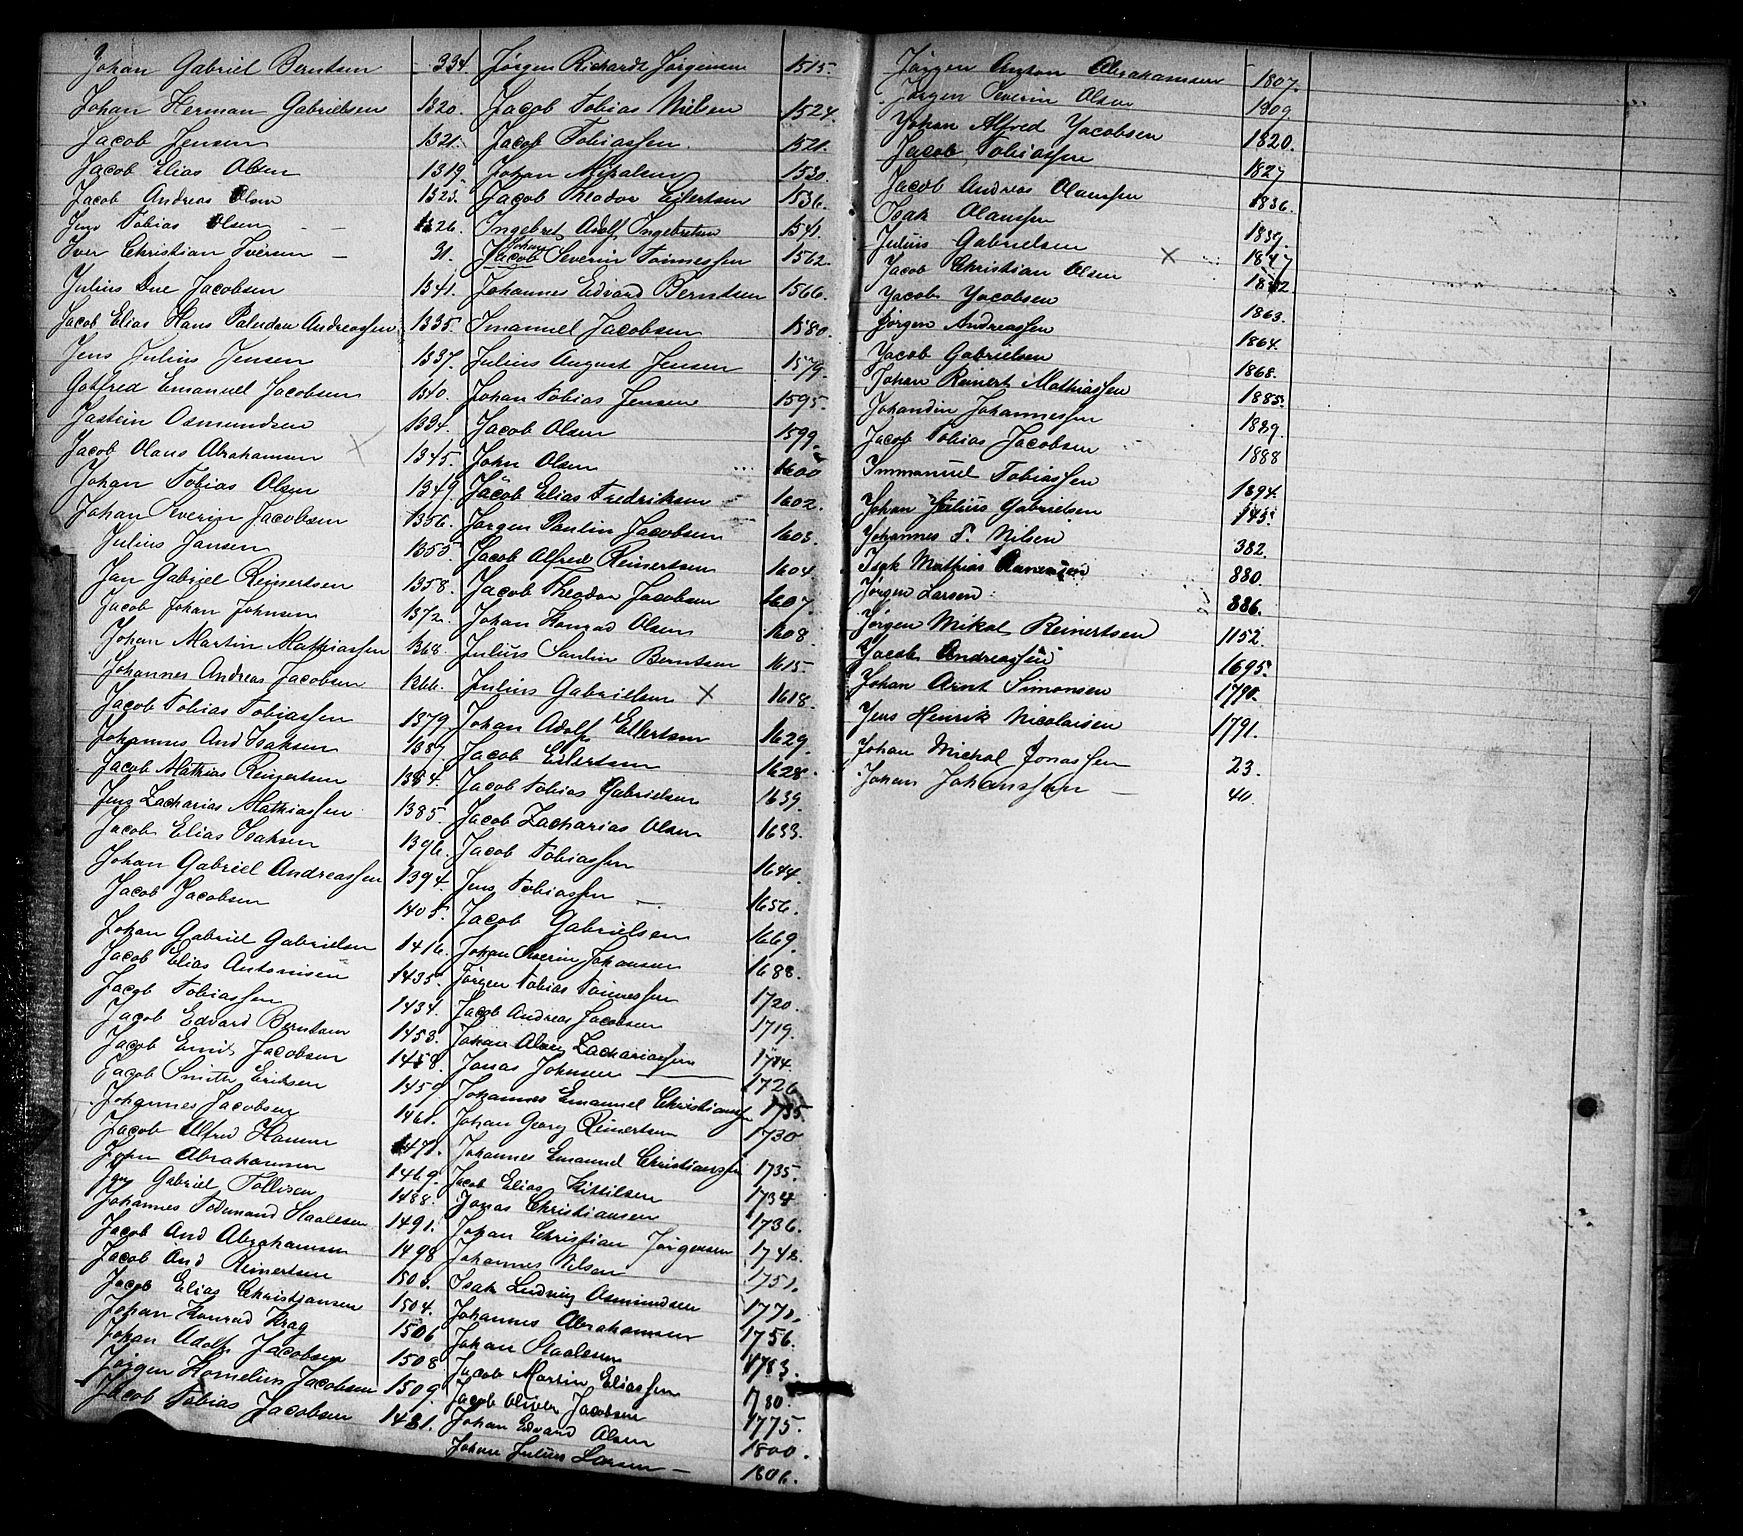 Johan Gabriel Berntsen 334
Johan Herman Gabrielsen 1320.
Jacob Jensen 1321.
Jacob Elias Olsen 1319.
Jacob Andreas Olsen 1325.
Jens Tobias Olsen 1326.
Iver Christian Iversen 31.
Julius Due Jacobsen 1341.
Jacob Elias Hans Paludan Andreassen 1335.
Jens Julius Jensen 1337.
Gotfred Emanuel Jacobsen 1340.
Osmundsen 1334.
Jacob Olaus Abrahamsen 1345.
Johan Tobias Olsen 1349.
Johan Severin Jacobsen 1356.
Julius Jansen 1355.
Jan Gabriel Reinertsen 1358.
Jacob Johan Johnsen 1372.
Johan Martin Mathiassen 1368.
Johannes Andreas Jacobsen 1366.
Jacob Tobias Tobiassen 1379.
Johannes And Isaksen 1387.
Jacob Mathias Reinertsen 1384.
Jens Zacharias Mathiassen 1385.
Jacob Elias Isaksen 1396.
Johan Gabriel Andreassen 1394.
Jacob Jacobsen 1405.
Johan Gabriel Gabrielsen 1416.
Jacob Elias Antonisen 1435.
Jacob Tobiassen 1434.
Jacob Edvard Berntsen 1453.
Jacob Emil Jacobsen 1458.
Jacob Smith Eriksen 1459.
Johannes Jacobsen 1461.
Jacob Alfred Hansen 1471.
John Abrahamsen 1469.
Jens Gabriel Tollisen 1488.
Johannes Ferdinand Staalesen 1491.
Jacob And Abrahamsen 1498
Jacob And Reinertsen 1503.
Jacob Elias Christiansen 1504.
Johan Konrad Krag 1506
Johan Adolf Jacobsen 1508.
Jørgen Kornelius Jacobsen 1509.
Jacob Tobias Jacobsen 1481.
Jørgen Richardt Jørgensen 1515.
Jacob Tobias Nilsen 1524.
Jacob Tobiassen 1521.
Johan Mikalsen 1530.
Jacob Theodor Eilertsen 1536.
Ingebret Adolf Ingebretsen 1541.
Johan
Jacob Severin Tønnessen 1562.
Johannes Edvard Berntsen 1566.
Imanuel Jacobsen 1580.
Julius August Jensen 1579.
Johan Tobias Jensen 1595.
Jacob Olsen 1599.
John Olsen 1600
Jacob Elias Fredriksen 1602.
Jørgen Paulin Jacobsen 1603.
Jacob Alfred Reinertsen 1604.
Jacob Theodor Jacobsen 1607.
Johan Konrad Olsen 1608.
Julius Paulin Berntsen 1615.
Julius Gabrielsen X 1618.
Johan Adolf Ellertsen 1629.
Jacob Eilertsen 1628.
Jacob Tobias Gabrielsen 1639.
Jacob Zacharias Olsen 1633.
Jacob Tobiassen 1644.
Jens Tobiassen 1656.
Jacob Gabrielsen 1669.
Johan Severin Johansen 1688.
Jørgen Tobias Tønnessen 1720.
Jacob Andreas Jacobsen 1719.
Johan Zachariassen 1714.
Jonas Johnsen 1726
Johannes Emanuel Christiansen 1735.
Johan Georg Reinertsen 1730
Johannes Emanuel Christiansen 1735.
Jacob Elias Kittilsen 1734
Jonas Christiansen 1736.
Johan Christian Jørgensen 1742.
Johannes Nilsen 1751.
Isak Ludvig Osmundsen 1771.
Johannes Abrahamsen 1756.
Johan Staalesen 1783.
Jacob Martin Eliassen 1780.
Jacob Oliver Jacobsen 1775.
Johan Edvard Olsen 1800.
Johan Julius Larsen 1806.
Jørgen Anton Abrahamsen 1807.
Jørgen Severin Olsen 1809.
Johan Alfred Jacobsen 1820.
Jacob Tobiassen 1827
Jacob Andreas Olaussen 1836.
Isak Olaussen 1839.
Julius Gabrielsen X 1847
Jacob Christian Olsen 1852
Jacob Jacobsen 1863.
Jørgen Andreassen 1864.
Jacob Gabrielsen 1868.
Johan Reinert Mathiassen 1885.
Johandin Johannessen 1889.
Jacob Tobias Jacobsen 1888
Immanuel Tobiassen 1894.
Johan Julius Gabrielsen 145.
Johannes F. Nilsen 382.
Isak Mathias Aanensen 880.
Jørgen Larsen 886.
Jørgen Mikal Reinertsen 1152.
Jacob Andreassen 1695.
Johan Arnt Simonsen 1790.
Jens Henrik Nicolaisen 1791.
Johan Mickal Jonassen 23.
Johan Johanssen 40.